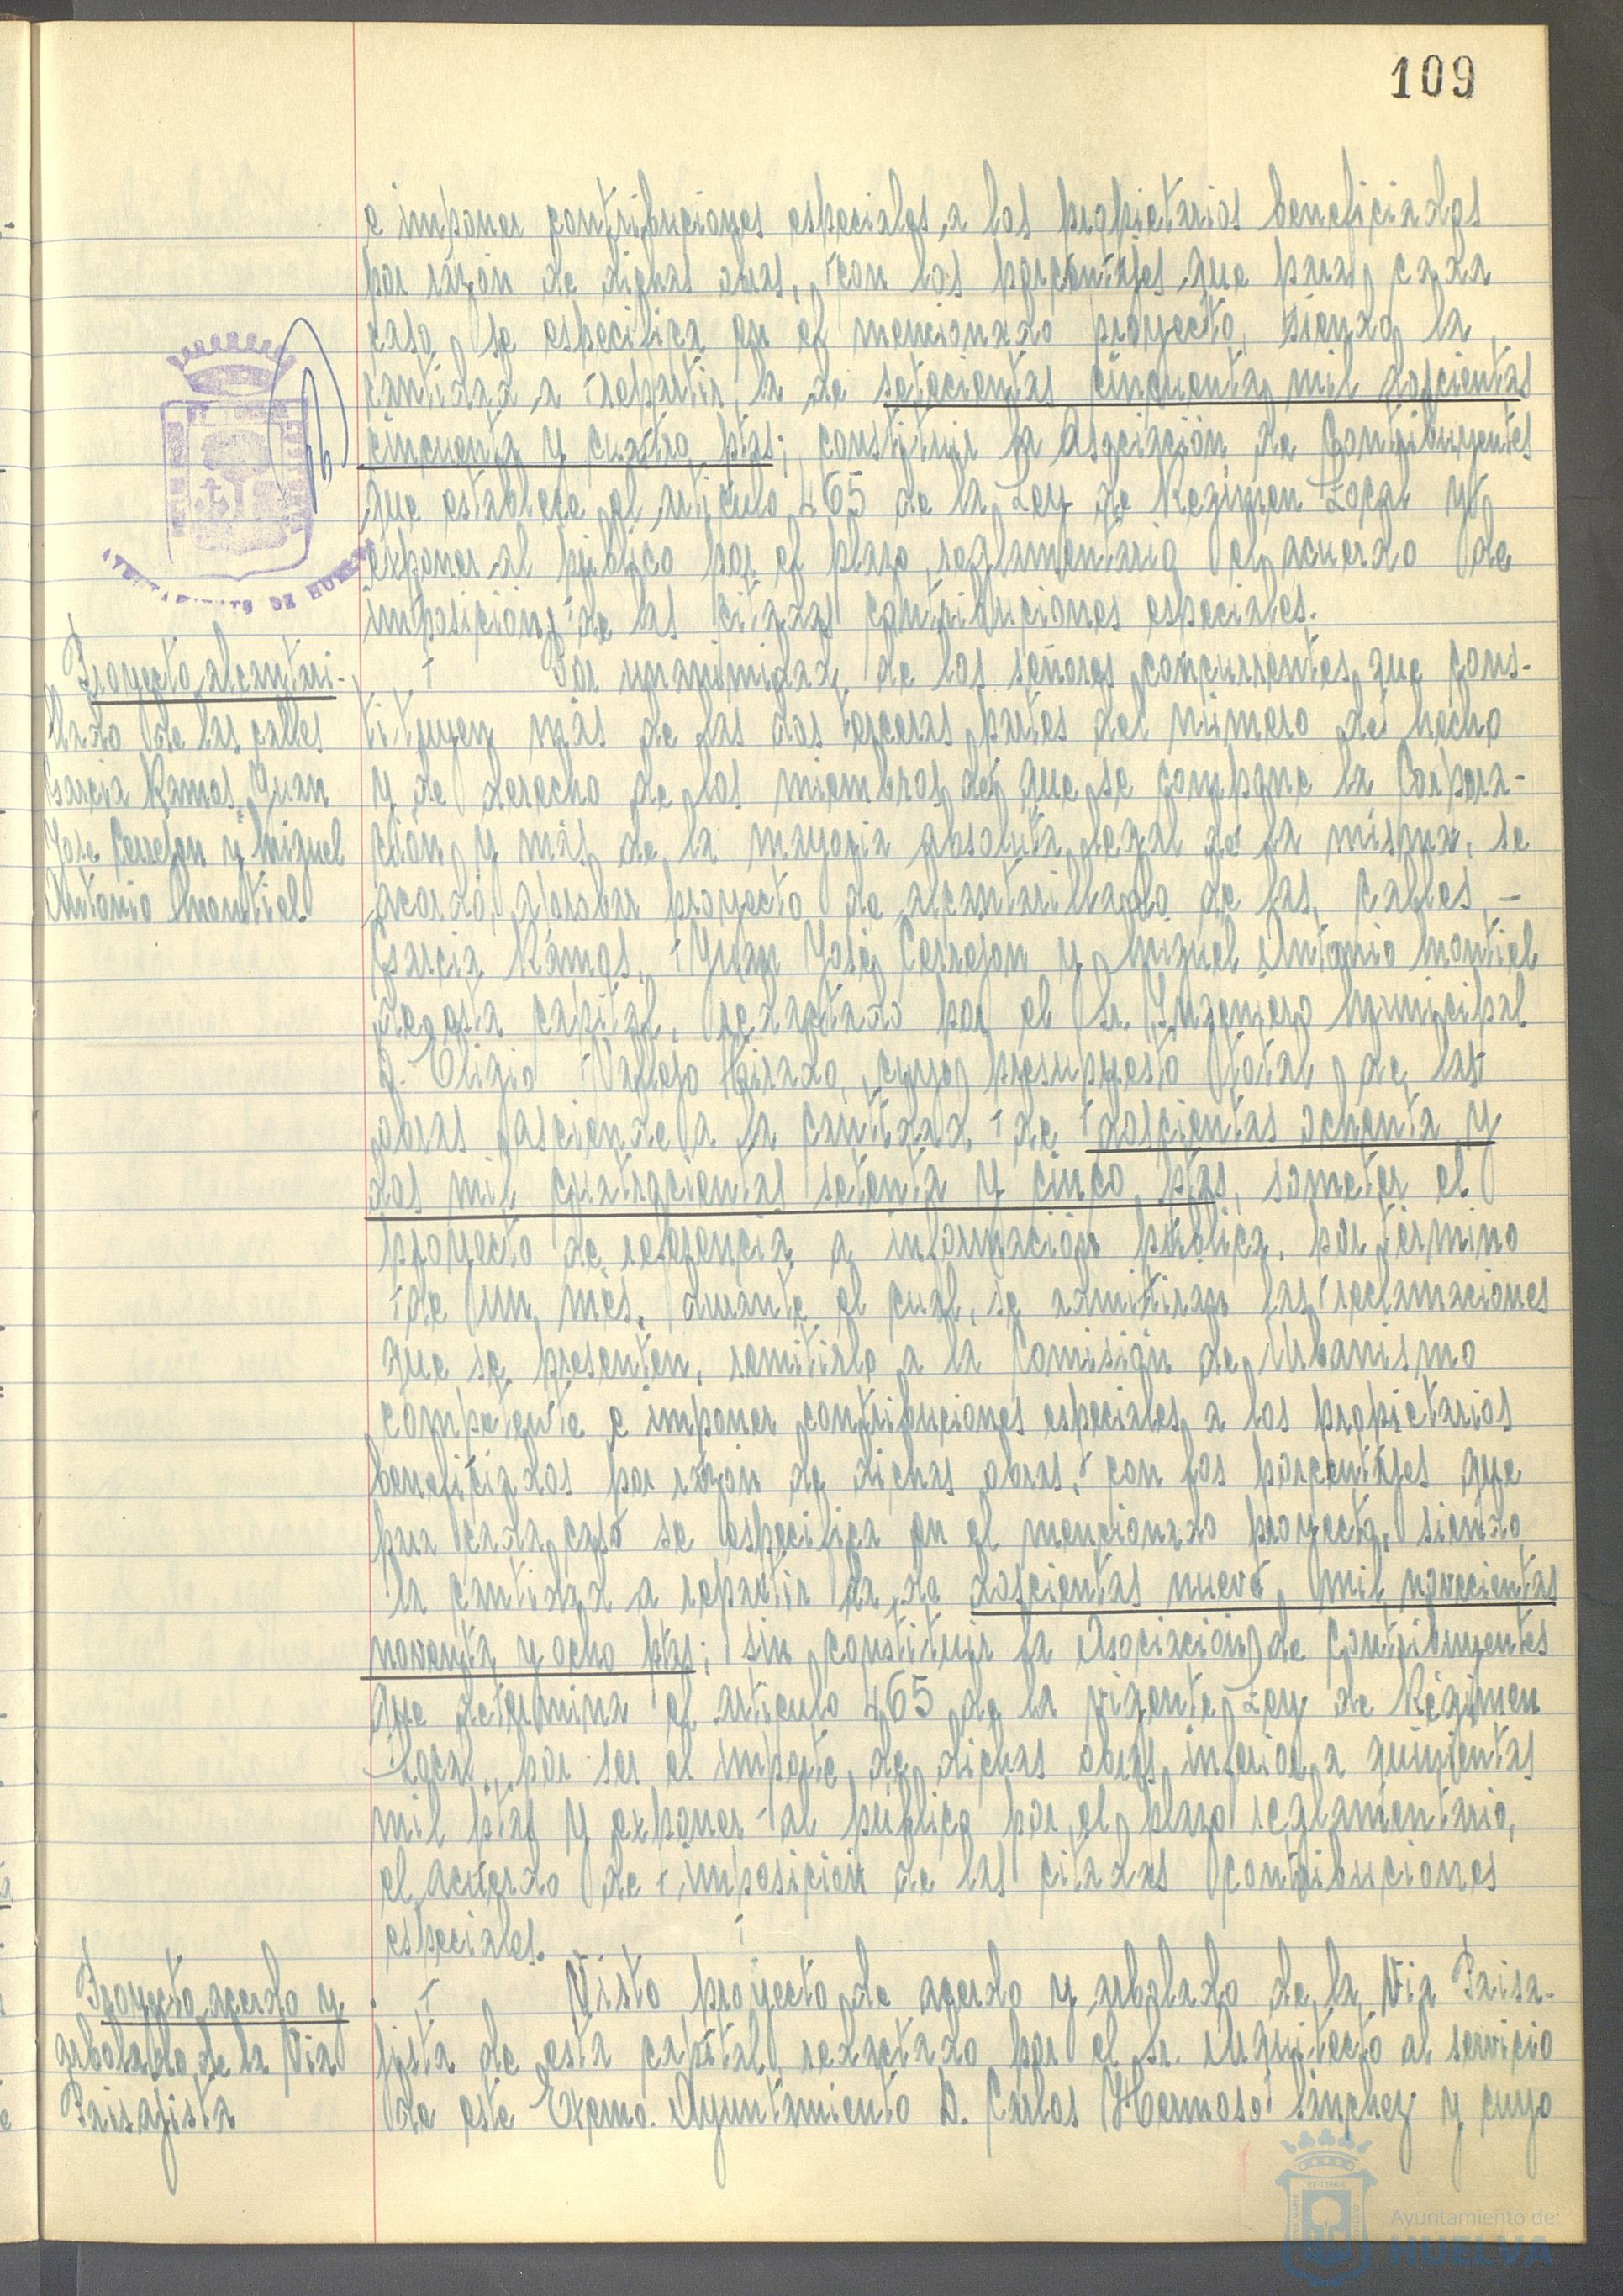 109
e imponer contribuciones especiales a los propietarios beneficiados
por razón de dichas obras, con los porcentajes que para cada
caso se especifica en el mencionado proyecto, siendo la
cantidad a repartir la de setecientas cincuenta mil doscientas
cincuenta y cuatro ptas; constituir la Asociación de Contribuyentes
que establece el artículo 465 de la Ley de Regimen Local y
exponer al público por el plazo reglamentario el acuerdo de
imposición de las citadas contribuciones especiales.
AYUNTAMIENTO DE HUELVA
Proyecto alcantari-
llado de las calles
Garcia Ramos, Juan
Jose Cerrejon y Miguel
Antonio Montiel
Por unanimidad de los señores concurrentes que cons-
tituyen más de las dos terceras partes del número de hecho
y de derecho de los miembros de que se compone la Corpora-
ción y más de la mayoria absoluta legal de la misma, se
acordó aprobar proyecto de alcantarillado de las calles -
Garcia Ramos, Juan José Cerrejon y Miguel Antonio Montiel
de esta capital, redactado por el Sr. Ingeniero Municipal
D. Eligio Vallejo Hirado, cuyo presupuesto total de las
obras asciende a la cantidad de doscientas ochenta y
dos mil cuatrocientas setenta y cinco ptas, someter el
proyecto de referencia a información pública, por término
de un més, durante el cual, se admitiran las reclamaciones
que se presenten, remitirlo a la Comisión de Urbanismo
competente e imponer contribuciones especiales a los propietarios
beneficiados por razón de dichas obras, con los porcentajes que
para cada caso se especifica en el mencionado proyecto, siendo
la cantidad a repartir la de doscientas nueve mil novecientas
noventa y ocho ptas; sin constituir la Asociación de Contribuyentes
que determina el artículo 465 de la vigente Ley de Régimen
Local, por ser el importe de dichas obras inferior a quinientas
mil ptas y exponer al público por el plazo reglamentario,
el acuerdo de imposición de las citadas contribuciones
especiales.
Proyecto acerdo y
arbolado de la Via
Paisajista
Visto proyecto de acerdo y arbolado de la Via Paisa-
jista de esta capital, redactado por el Sr. Arquitecto al servicio
de este Excmo. Ayuntamiento D. Carlos Hermoso Sánchez y cuyo
Ayuntamiento de
HUELVA